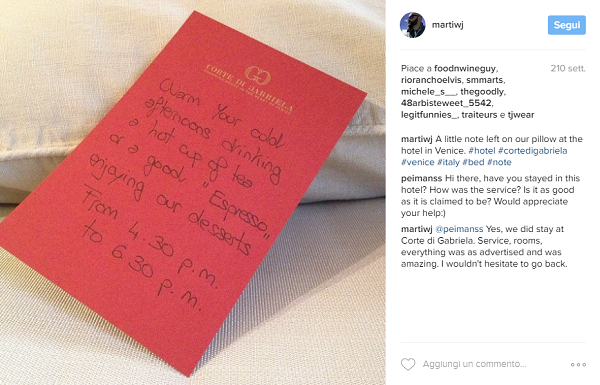 CORTE DI GABRIELA
Warm Your cold
afternoons drinking
a hot cup of tea
or a good "Espresso"
enjoying our desserts
From 4.30 p.m.
to 6.30 p.m.
martiwj
Segui
Piace a foodnwineguy,
210 sett.
rioranchoelvis, smmarts,
michele_s__, thegoodly,
48arbisteweet_5542,
legitfunnies_, traiteurs e tjwear
martiwj A little note left on our pillow at the
hotel in Venice. #hotel #cortedigabriela
#venice #italy #bed #note
peimanss Hi there, have you stayed in this
hotel? How was the service? Is it as good
as it is claimed to be? Would appreciate
your help:)
martiwj @peimanss Yes, we did stay at
Corte di Gabriela. Service, rooms,
everything was as advertised and was
amazing. I wouldn't hesitate to go back.
Aggiungi un commento...